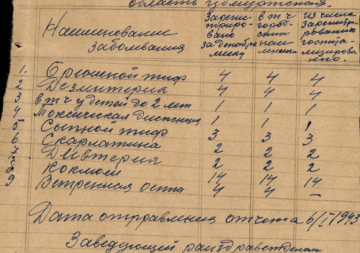 область
Наименование заболевания
Зареги-стриро-вано за декабрь месяц
в т ч город-ских насе-
Из числа зарегистри-рованных госпита-лизирова-но.
1. Брюшной тиф 4 4 4
2 Дезинтерия 4 4 4
3 в т ч у детей до 2 лет 1 1 1
4 Токсическая диспепсия 1 1 1
5 Сыпной тиф 3 3 3
6 Скарлатина 2 2 2
7 Дифтерия 2 2 2
8 Коклюш 14 14 14
9 Ветренная оспа 4 4 –
Дата отправления отчета 6/I 1943
Заведующий райздравотделом